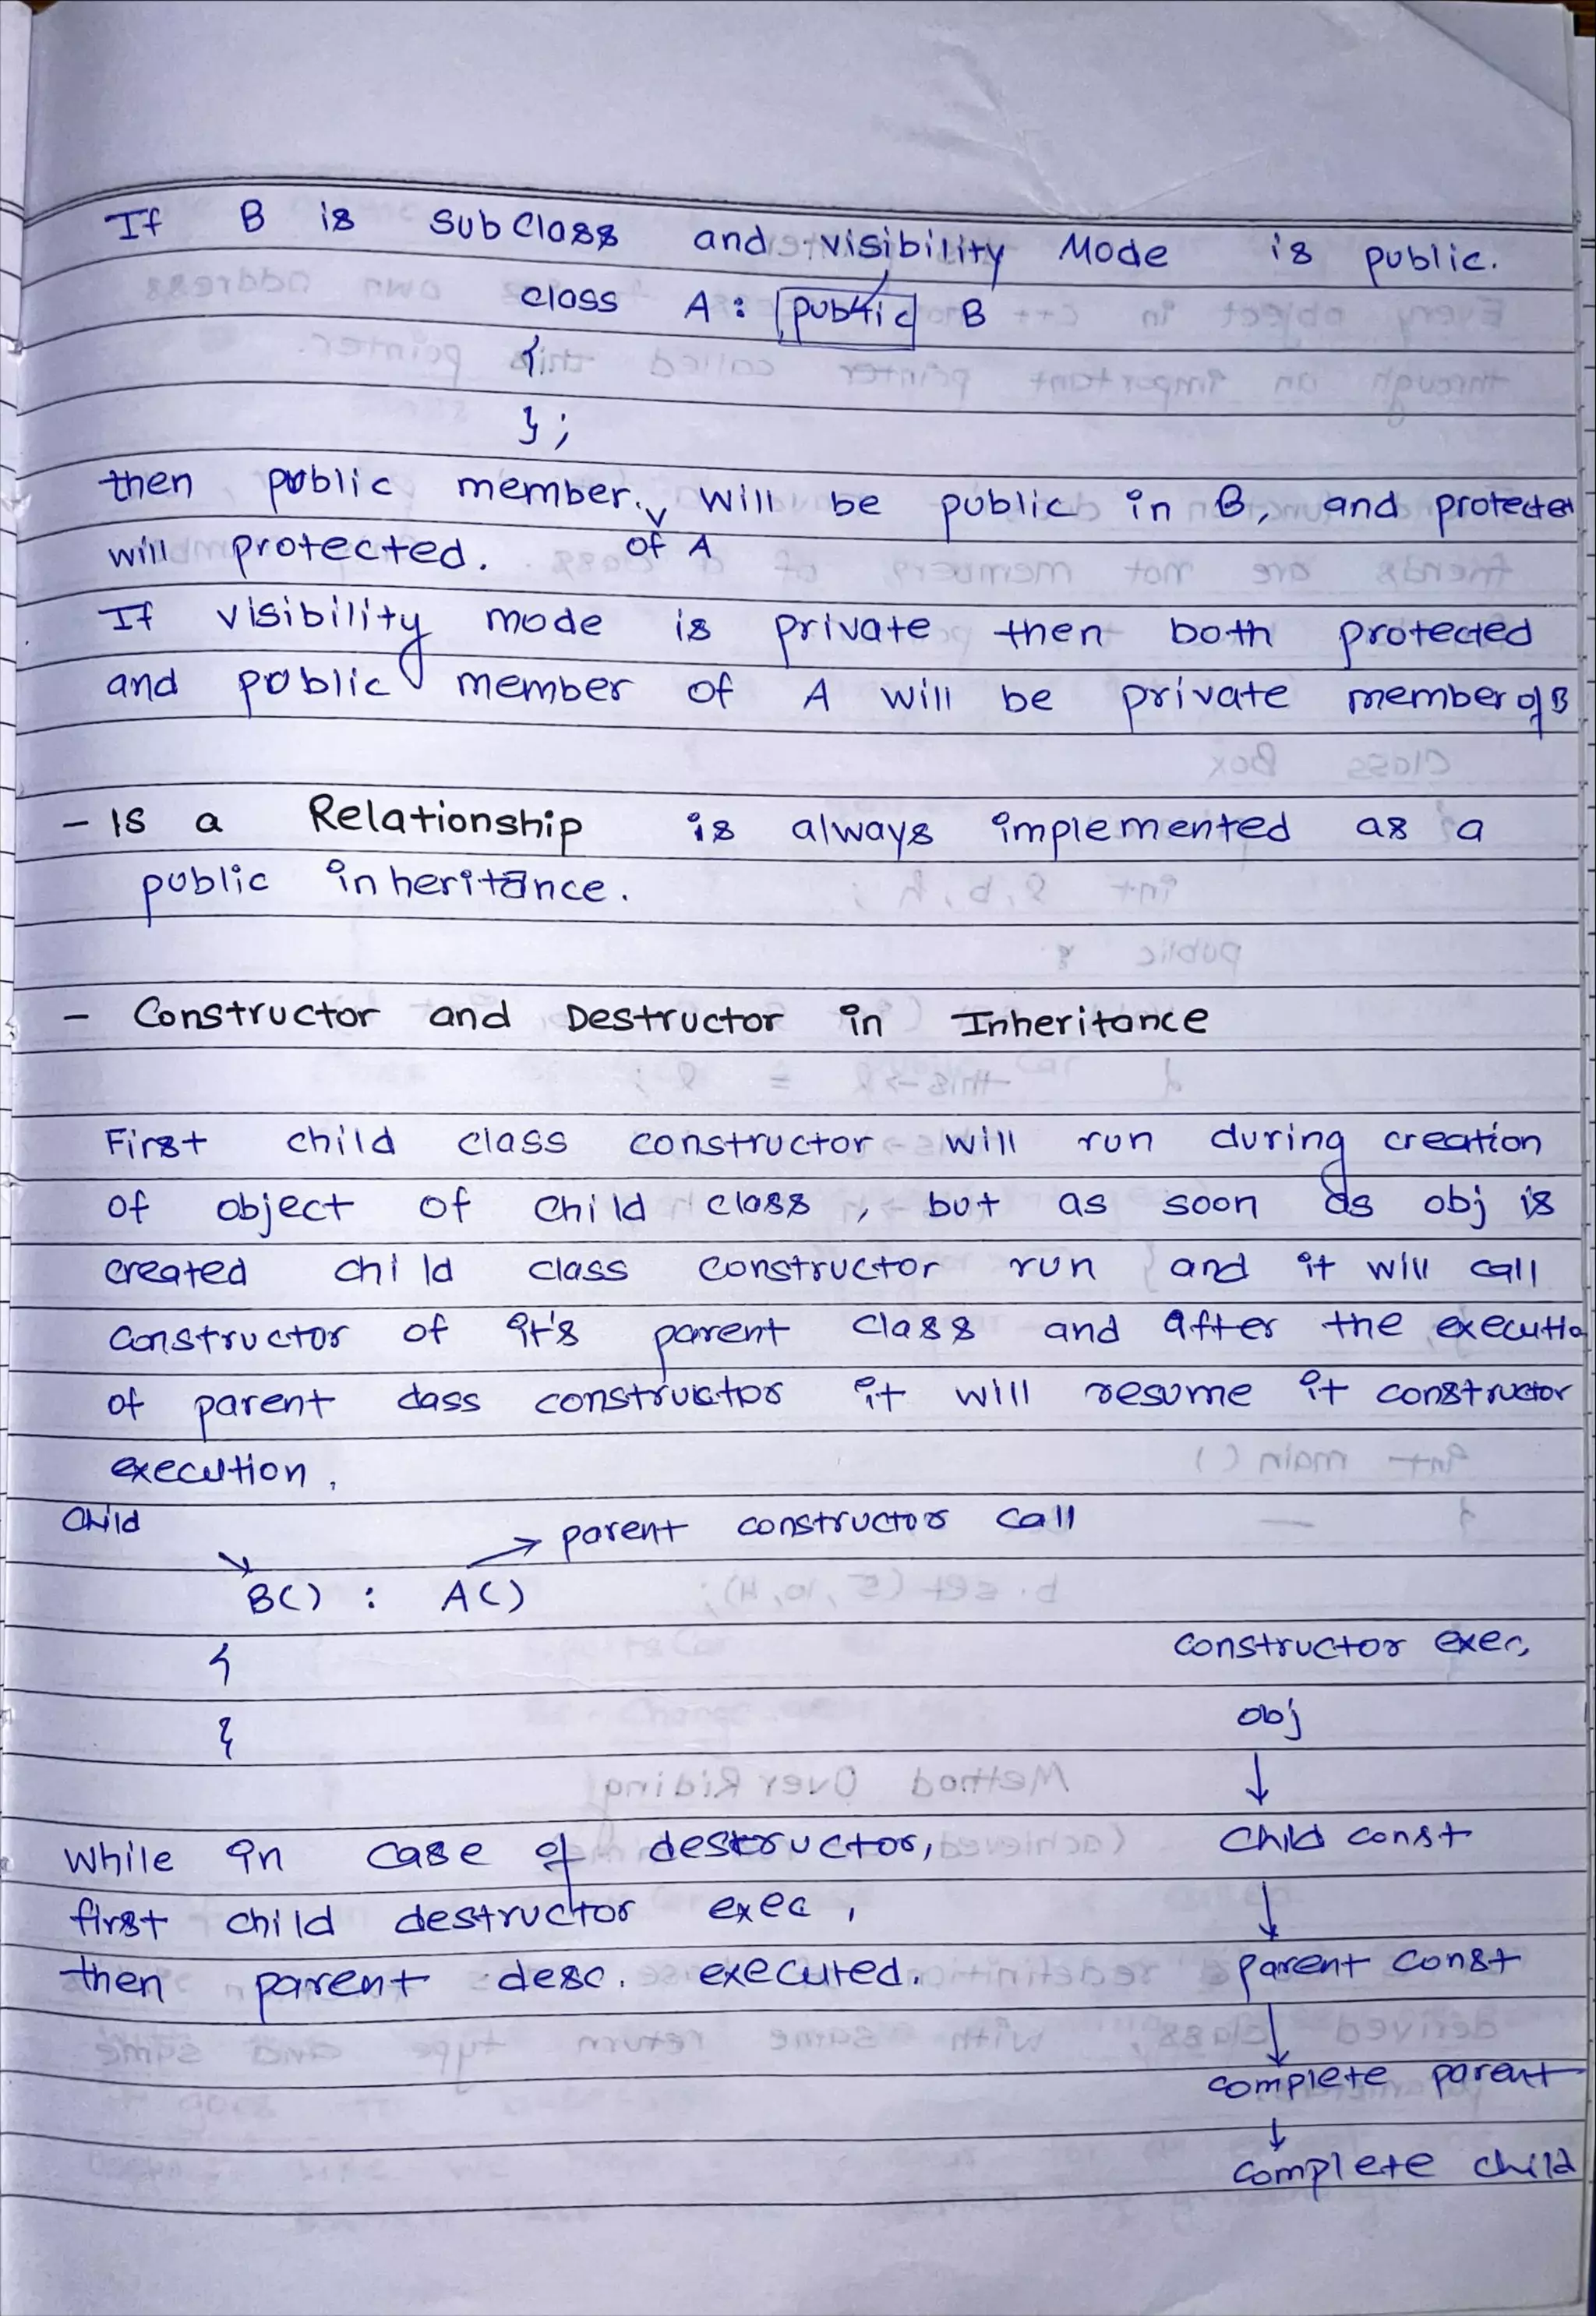 If B is SubClass and visibility Mode is public.
class A : public B
{
};
then public member of A will be public in B, and protected
will protected.
If visibility mode is private then both protected
and public member of A will be private member of B
- Is a Relationship is always implemented as a
public inheritance.
- Constructor and Destructor in Inheritance
First child class constructor will run during creation
of object of child class, but as soon as obj is
created child class constructor run and it will call
constructor of it's parent class and after the executio
of parent class constructor it will resume it constructor
execution.
Child
→ parent constructor call
B() : A()
{
}
constructor exec,
obj
↓
Child const
↓
parent const
↓
complete parent
↓
complete child
While in case of destructor,
first child destructor exec,
then parent desc. executed.